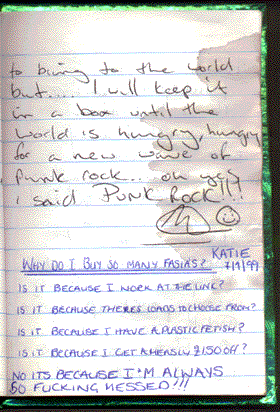 to bring to the world
but.... I will keep it
in a box until the
world is hungry, hungry
for a new wave of
Punk rock... oh yes
I said PUNK ROCK!!!
KATIE
WHY DO I BUY SO MANY FASIAS?
7/9/99
IS IT BECAUSE I WORK AT THE LINK?
IS IT BECAUSE THERES LOADS TO CHOOSE FROM?
IS IT BECAUSE I HAVE A PLASTIC FETISH?
IS IT BECAUSE I GET A MEASLY £1.50 OFF?
NO ITS BECAUSE I'M ALWAYS
SO FUCKING MESSED!!!